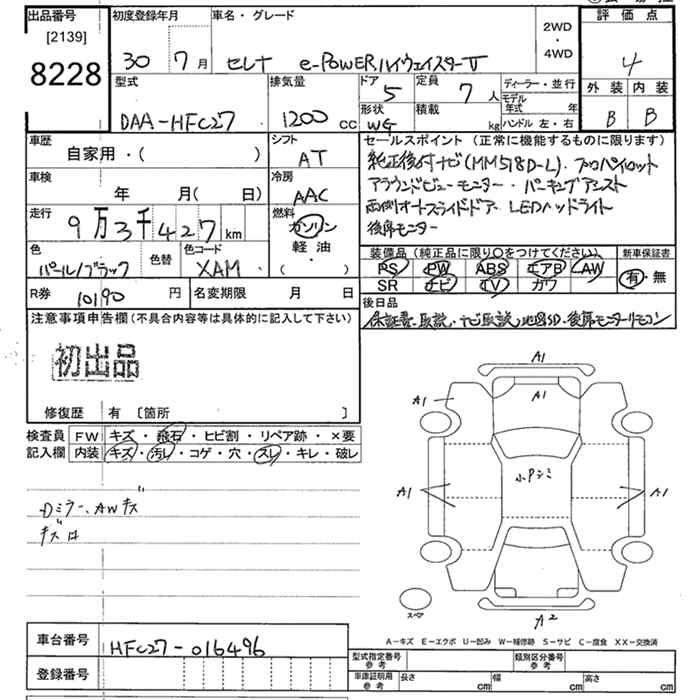 出品番号
[2139]
8228
初度登録年月
30 7 月
車名・グレード
セレナ e-POWERハイウェイスターV
2WD
・
4WD
評価点
4
外装 内装
B B
型式
DAA-HFC27
排気量
1200 cc
ドア
5
定員
7 人
形状
WG
積載
kg
ディーラー・並行
モデル年式 年
ハンドル 左・右
車歴
自家用・( )
シフト
AT
車検
年 月( 日)
冷房
AAC
走行
9万3千427 km
燃料
ガソリン
軽油
・
( )
色
パール/ブラック
色替
色コード
XAM
R券 10190 円
名変期限 月 日
セールスポイント(正常に機能するものに限ります)
純正後付ナビ(MM518D-L)・プロパイロット
アラウンドビューモニター・パーキングアシスト
両側オートスライドドア・LEDヘッドライト
後席モニター
装備品(純正品に限り○をつけてください)
PS PW ABS エアB AW
SR ナビ TV ガワ
新車保証書
有・無
後日品
保証書・取説・ナビ取説・地図SD・後席モニターリモコン
注意事項申告欄(不具合内容等は具体的に記入して下さい)
初出品
修復歴 有 〔箇所 〕
検査員
記入欄
FW キズ・飛石・ヒビ割・リペア跡・×要
内装 キズ・汚レ・コゲ・穴・スレ・キレ・破レ
Dミラー、AWキズ
キズ
A1
A1
A1
A1
小Pシミ
A1
A1
A2
スペア
A-キズ E-エクボ U-凹み W-補修跡 S-サビ C-腐食 XX-交換済
車台番号 HFC27-016496
登録番号
型式指定番号
参考
類別区分番号
参考
車庫証明用
参考
長さ cm
幅 cm
高さ cm